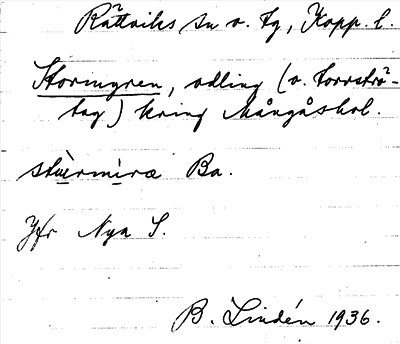 Rättviks sn o. tg, Kopp. l.
Stormyren, odling (o. torvströ-
tag) kring Mångåsbol.
stùrmìræ Ba.
Jfr Nya S.
B. Lindén 1936.